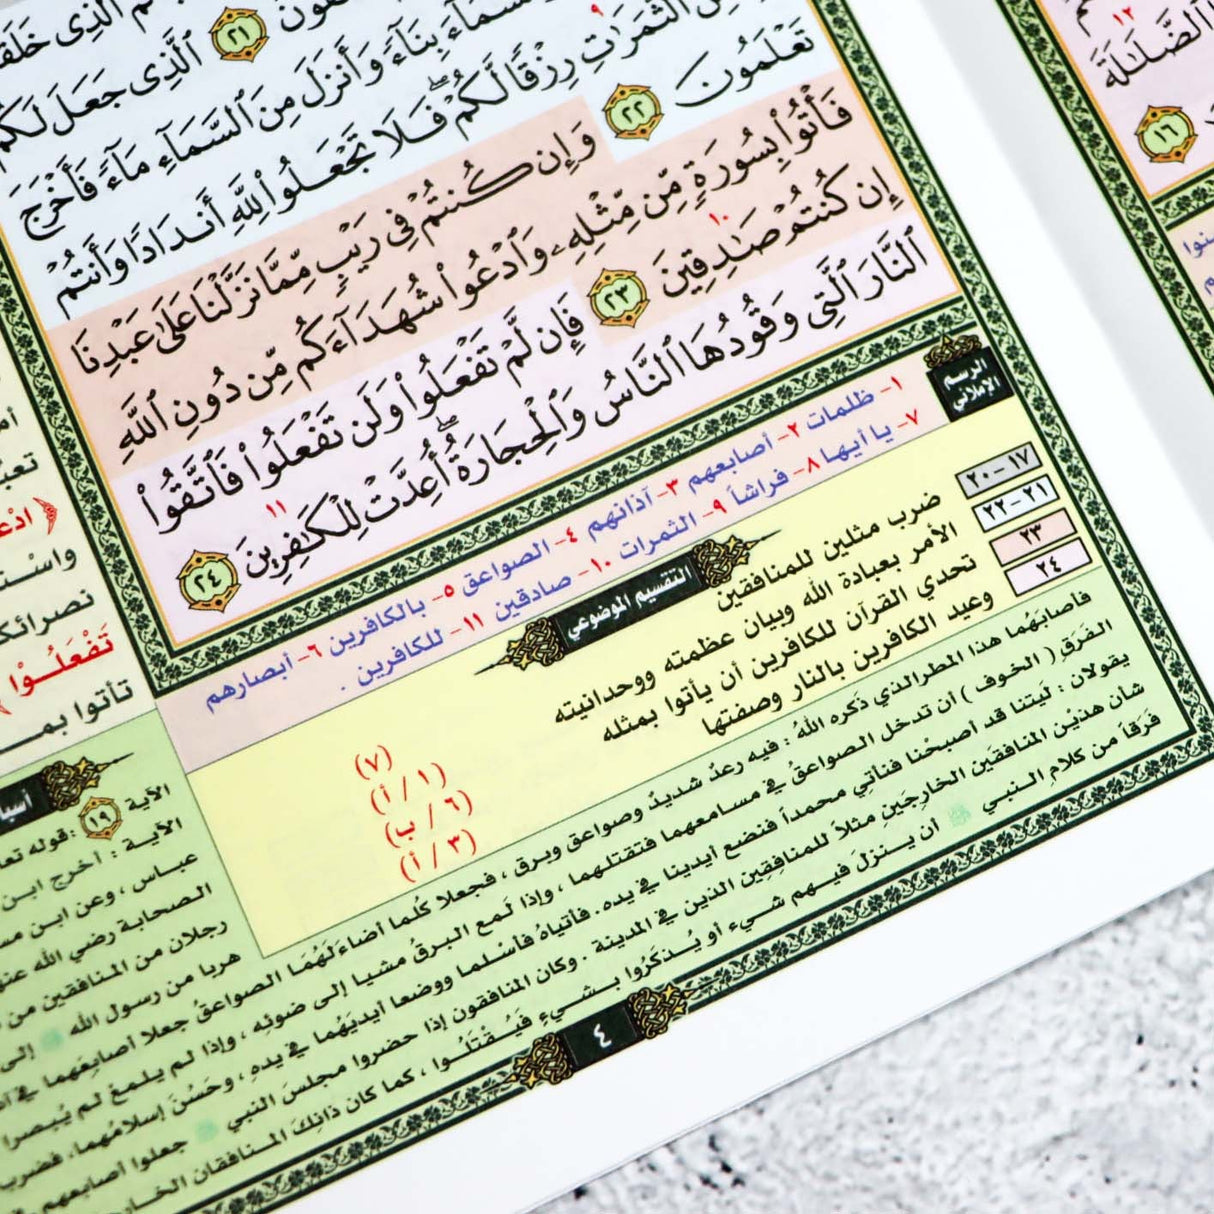 ٱلَّذِى خَلَقَ
٢١
ٱلَّذِى جَعَلَ لَكُمُ
بِنَآءً وَأَنزَلَ مِنَ ٱلسَّمَآءِ مَآءً فَأَخْرَجَ
٩
ٱلثَّمَرَٰتِ رِزْقًا لَّكُمْ ۖ فَلَا تَجْعَلُوا۟ لِلَّهِ أَندَادًا وَأَنتُمْ
تَعْلَمُونَ ٢٢ وَإِن كُنتُمْ فِى رَيْبٍ مِّمَّا نَزَّلْنَا عَلَىٰ عَبْدِنَا
فَأْتُوا۟ بِسُورَةٍ مِّن مِّثْلِهِۦ وَٱدْعُوا۟ شُهَدَآءَكُم مِّن دُونِ ٱللَّهِ
١٠
إِن كُنتُمْ صَٰدِقِينَ ٢٣ فَإِن لَّمْ تَفْعَلُوا۟ وَلَن تَفْعَلُوا۟ فَٱتَّقُوا۟
ٱلنَّارَ ٱلَّتِى وَقُودُهَا ٱلنَّاسُ وَٱلْحِجَارَةُ ۖ أُعِدَّتْ لِلْكَٰفِرِينَ ٢٤
١١
الرسم
الإملائي
١- ظلمات ٢- أصابعهم ٣- آذانهم ٤- الصواعق ٥- بالكافرين ٦- أبصارهم
٧- يا أيها ٨- فراشاً ٩- الثمرات ١٠- صادقين ١١- للكافرين .
التقسيم الموضوعي
١٧-٢٠ ضرب مثلين للمنافقين (٧)
٢١-٢٢ الأمر بعبادة الله وبيان عظمته ووحدانيته (١ / أ)
٢٣ تحدي القرآن للكافرين أن يأتوا بمثله (٦ / ب)
٢٤ وعيد الكافرين بالنار وصفتها (٣ / أ)
فأصابَهُما هذا المطر الذي ذَكره اللهُ : فيه رعدٌ شديدٌ وصواعق وبرق ، فجعلا كُلما أضاءَ لَهُمَا الصواعقُ جعلا أصابعَهما في
الفَرَقِ ( الخوف ) أن تدخل الصواعقُ في مسامعهما فتقتلهما ، وإذا لَمع البرقُ مشيا إلى ضوئه ، وإذا لم يلمعْ لم يُبصرا
يقولان : لَيتنا قد أصبحْنا فنأتي محمداً فنضع أيدينا في يده . فأتياهُ فأسْلما ووضعا أيديَهُما في يدهِ ، وحَسُنَ إسلامُهما، فضرب
شأن هذيْن المنافقَين الخارجَينِ مثلاً للمنافِقِين الذين في المدينة . وكان المنافقون إذا حضروا مجلسَ النبي ﷺ جعلوا أصابعهم
فَرَقاً من كلامِ النبي ﷺ أن يَنزلَ فيهم شيء أو يُذكَرُوا بشيءٍ فَيُقْتَلُوا ، كما كان ذانِكَ المنافقان
٤
تَفْعَلُوا
تأتوا
أسبا
الآية ١٩ : قوله تعا
الآية : أخرج ابن
عباس ، وعن ابن
الصحابة رضي الله
رجلان من المنافقين من
هربا من رسول الله ﷺ إلى
١٢
ٱلضَّلَٰلَةَ
١٦